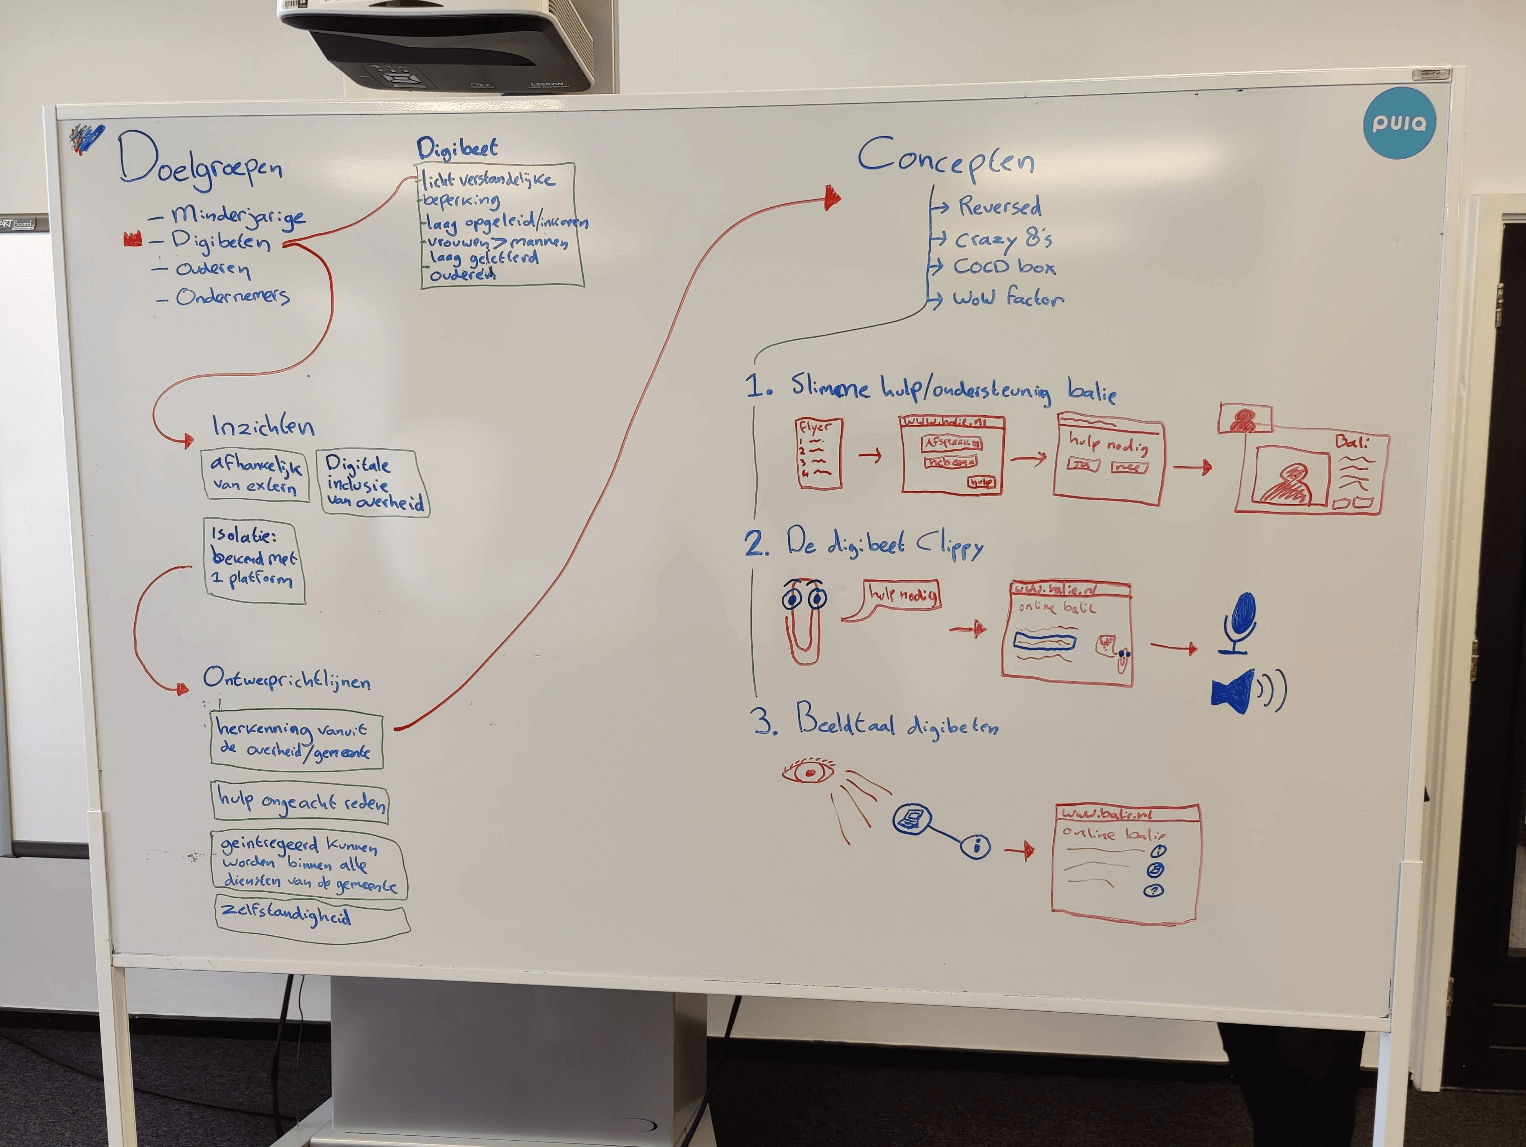 Doelgroepen
- Minderjarige
- Digibeten
- ouderen
- Ondernemers
Digibeet
- licht verstandelijke
beperking
- laag opgeleid/inkomen
- vrouwen > mannen
laag geletterd
- ouderen
Inzichten
afhankelijk
van extern
Digitale
inclusie
van overheid
Isolatie:
bekend met
1 platform
Ontwerprichtlijnen
herkenning vanuit
de overheid/gemeente
hulp ongeacht reden
geintregeerd kunnen
worden binnen alle
diensten van de gemeente
zelfstandigheid
Concepten
→ Reversed
→ Crazy 8's
→ COCD box
→ WOW factor
1. Slimme hulp/ondersteunig balie
flyer
1
2
3
4
www.balie.nl
Afspraak
hulp
hulp nodig
nee
Bali
2. De digibeet Clippy
hulp nodig
www.balie.nl
online balie
3. Beeldtaal digibeten
i
www.balie.nl
online balie
i
?
PUIQ